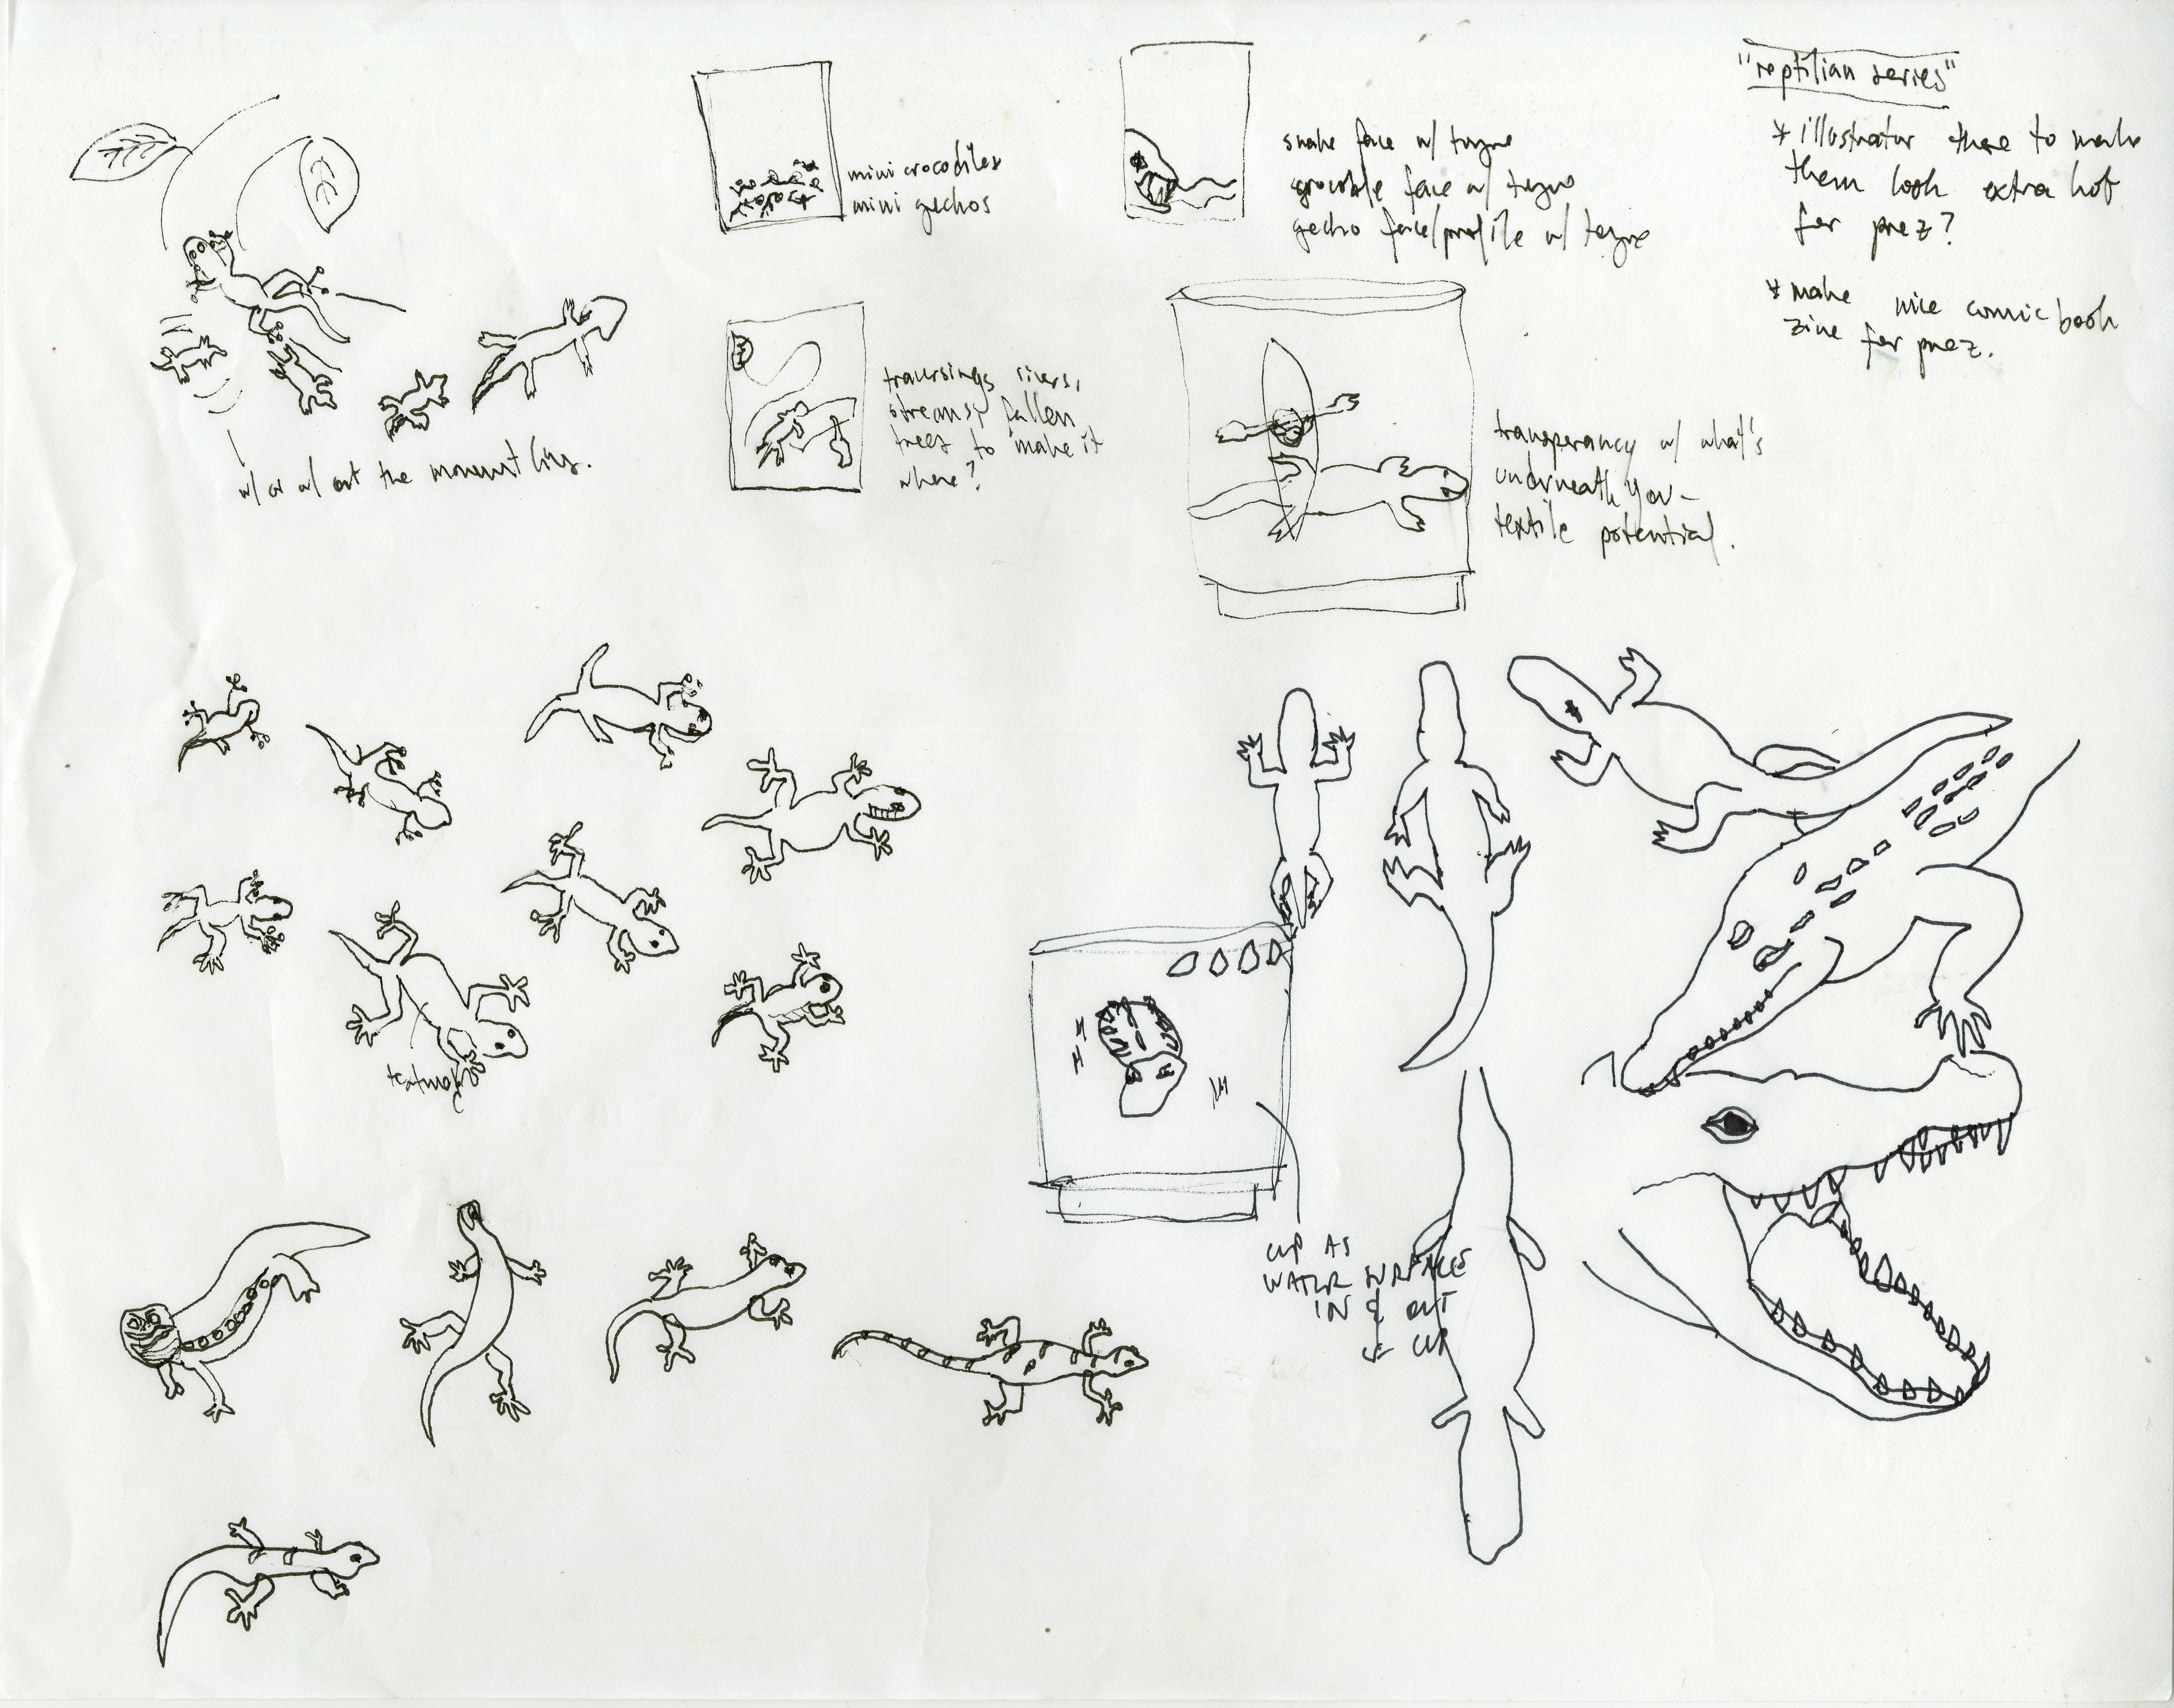 "reptilian series"
* illustrator these to make
them look extra hot
for prez?
* make nice comic book
zine for prez.
mini crocodiles
mini gechos
snake face w/ tongue
crocodile face w/ tongue
gecho face/profile w/ tongue
traversings rivers,
streams, fallen
trees to make it
where?
transperancy w/ what's
underneath you -
textile potential.
w/ or w/ out the movement lines.
CUP AS
WATER SURFACE
IN & OUT
CUP